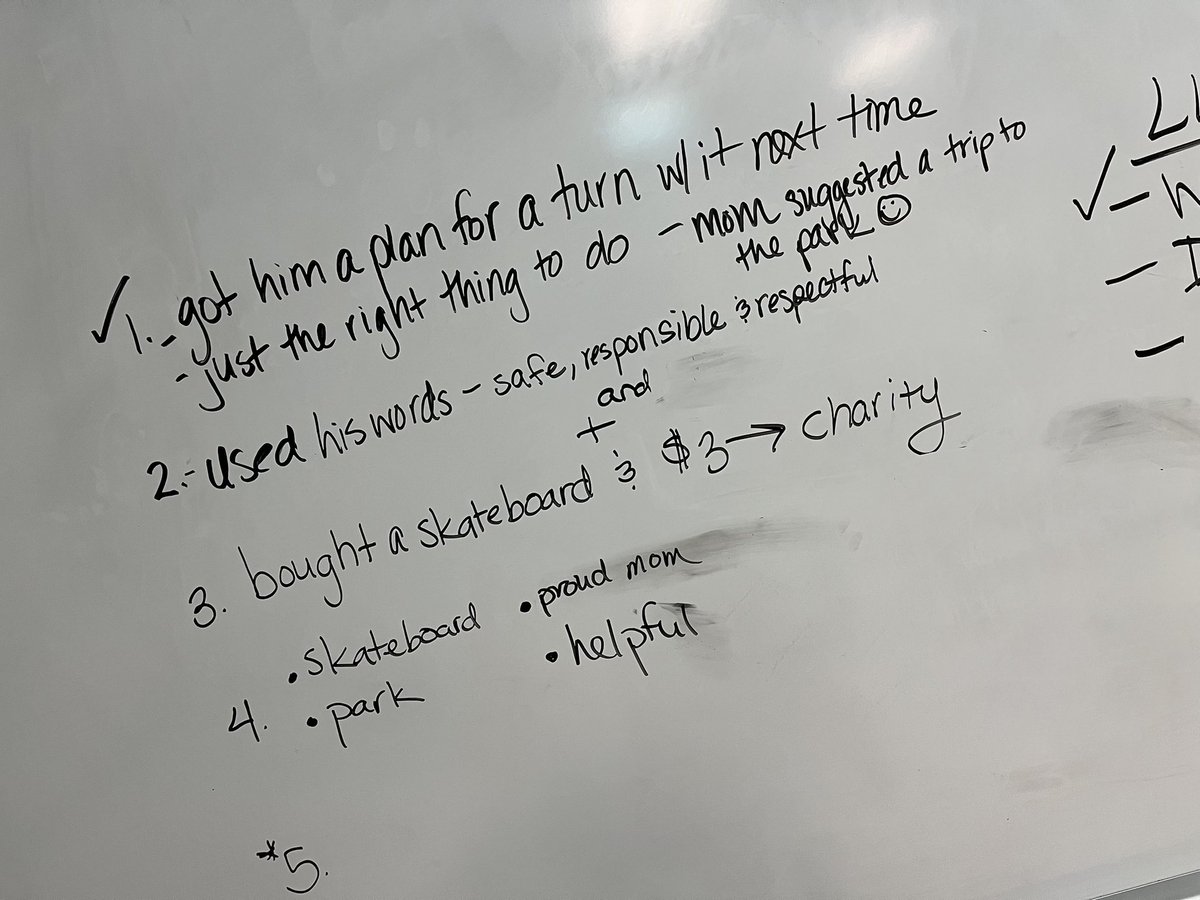 ✓ 1. - got him a plan for a turn w/ it next time
- just the right thing to do - mom suggested a trip to
the park ☺
2. - used his words - safe, responsible & respectful
and
+
3. bought a skateboard & $3 → charity
• skateboard • proud mom
4. • park • helpful
*5.
✓ -
- I
-